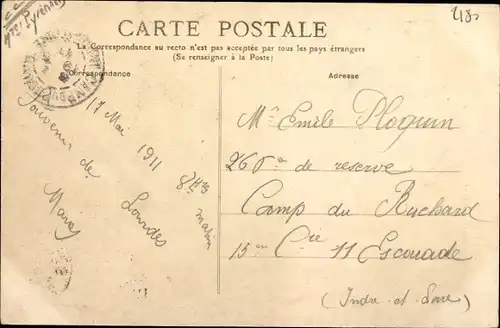 Htes Pyrénées
2180
CARTE POSTALE
La Correspondance au recto n'est pas acceptée par tous les pays étrangers
(Se renseigner à la Poste)
Correspondance
Adresse
17 Mai 1911
matin
Souvenir de Lourdes
Mr Emile Ploquin
de reserve
Camp du Ruchard
15em Cie 11 Escouade
(Indre et Loire)